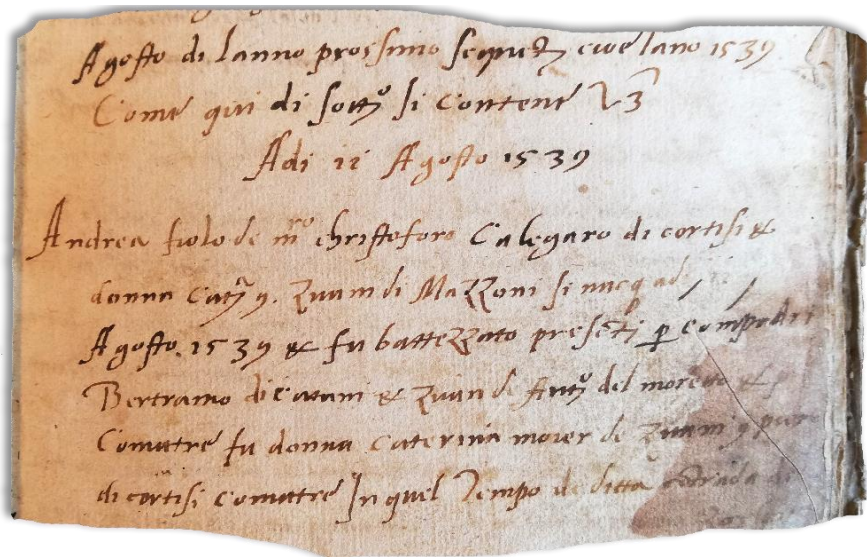 Agosto di lanno prossimo sequēt cioe lano 1539
Come qui di sotto si contene
Adi 11 Agosto 1539
Andrea fiolo de mro christoforo Calegaro di cortisi &
donna Cat q. Zuan di Mazzoni si nacq adi
Agosto. 1539 & fu battezzato presēti p compadri
Bertramo di catani & Zuan de Anto del moretto &
Comatre fu donna Caterina moier de Zuan q
di cortisi comatre In quel Tempo de ditta contrada di